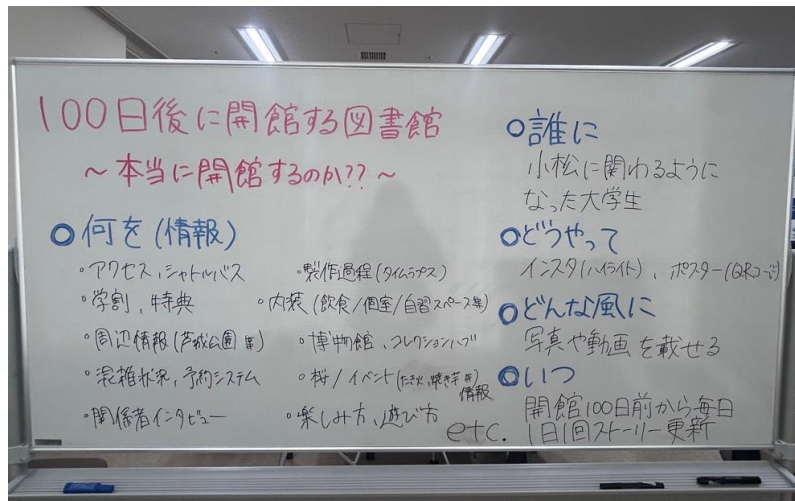 100日後に開館する図書館
～本当に開館するのか??～
○何を(情報)
・アクセス、シャトルバス
・学割、特典
・周辺情報(芦城公園等)
・混雑状況、予約システム
・関係者インタビュー
・製作過程(タイムラプス)
・内装(飲食/個室/自習スペース等)
・博物館、コレクションハブ
・桜/イベント(たき火、焼き芋等)
情報
・楽しみ方、遊び方
etc.
○誰に
小松に関わるように
なった大学生
○どうやって
インスタ(ハイライト)、ポスター(QRコード)
○どんな風に
写真や動画を載せる
○いつ
開館100日前から毎日
1日1回ストーリー更新